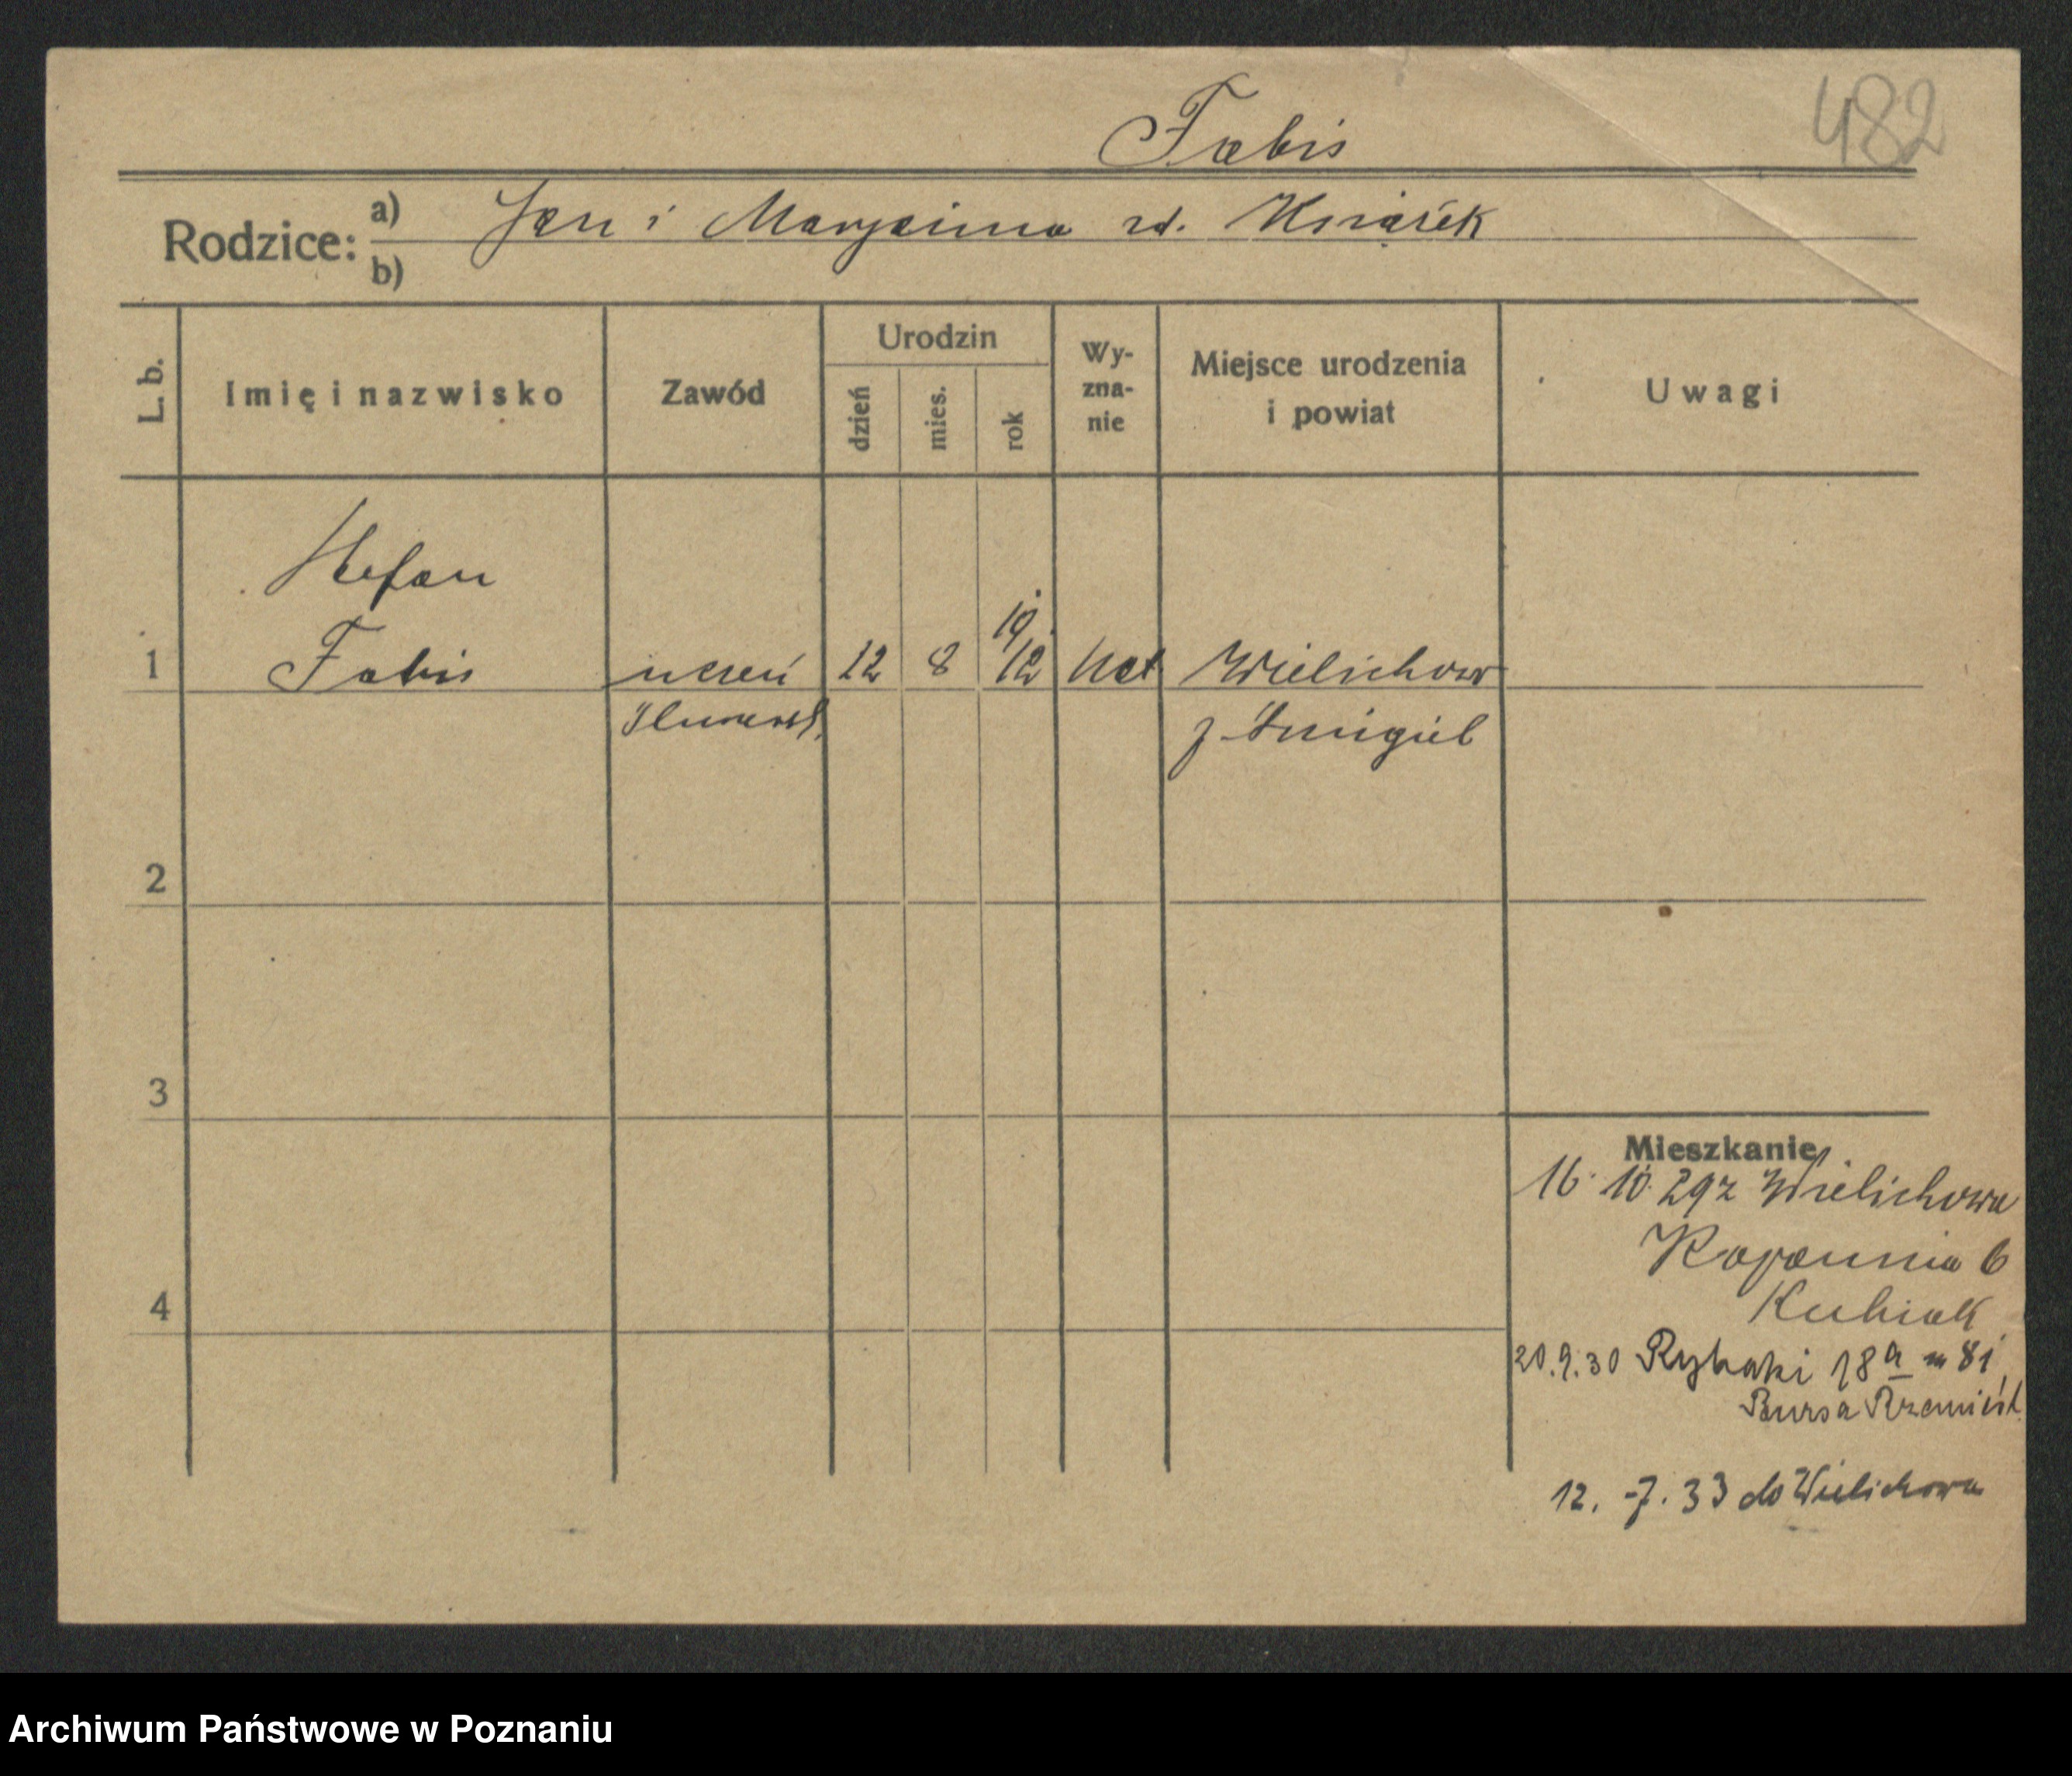 482
Fabis
Rodzice: a) Jan i Maryanna rd. Książek
b)
L. b.
Imię i nazwisko
Zawód
Urodzin
dzień
mies.
rok
Wy-
zna-
nie
Miejsce urodzenia
i powiat
Uwagi
Stefan
1 Fabis uczeń 12 8 19/12 kat Wielichow
ślusarsk. p. Śmigiel
2
3
Mieszkanie
16. 10. 29 z Wielichowa
Kopannia 6
4 Kubiak
20.9.30 Rybaki 18a m 81
Bursa Rzemieśl.
12. 7. 33 do Wielichowa
Archiwum Państwowe w Poznaniu